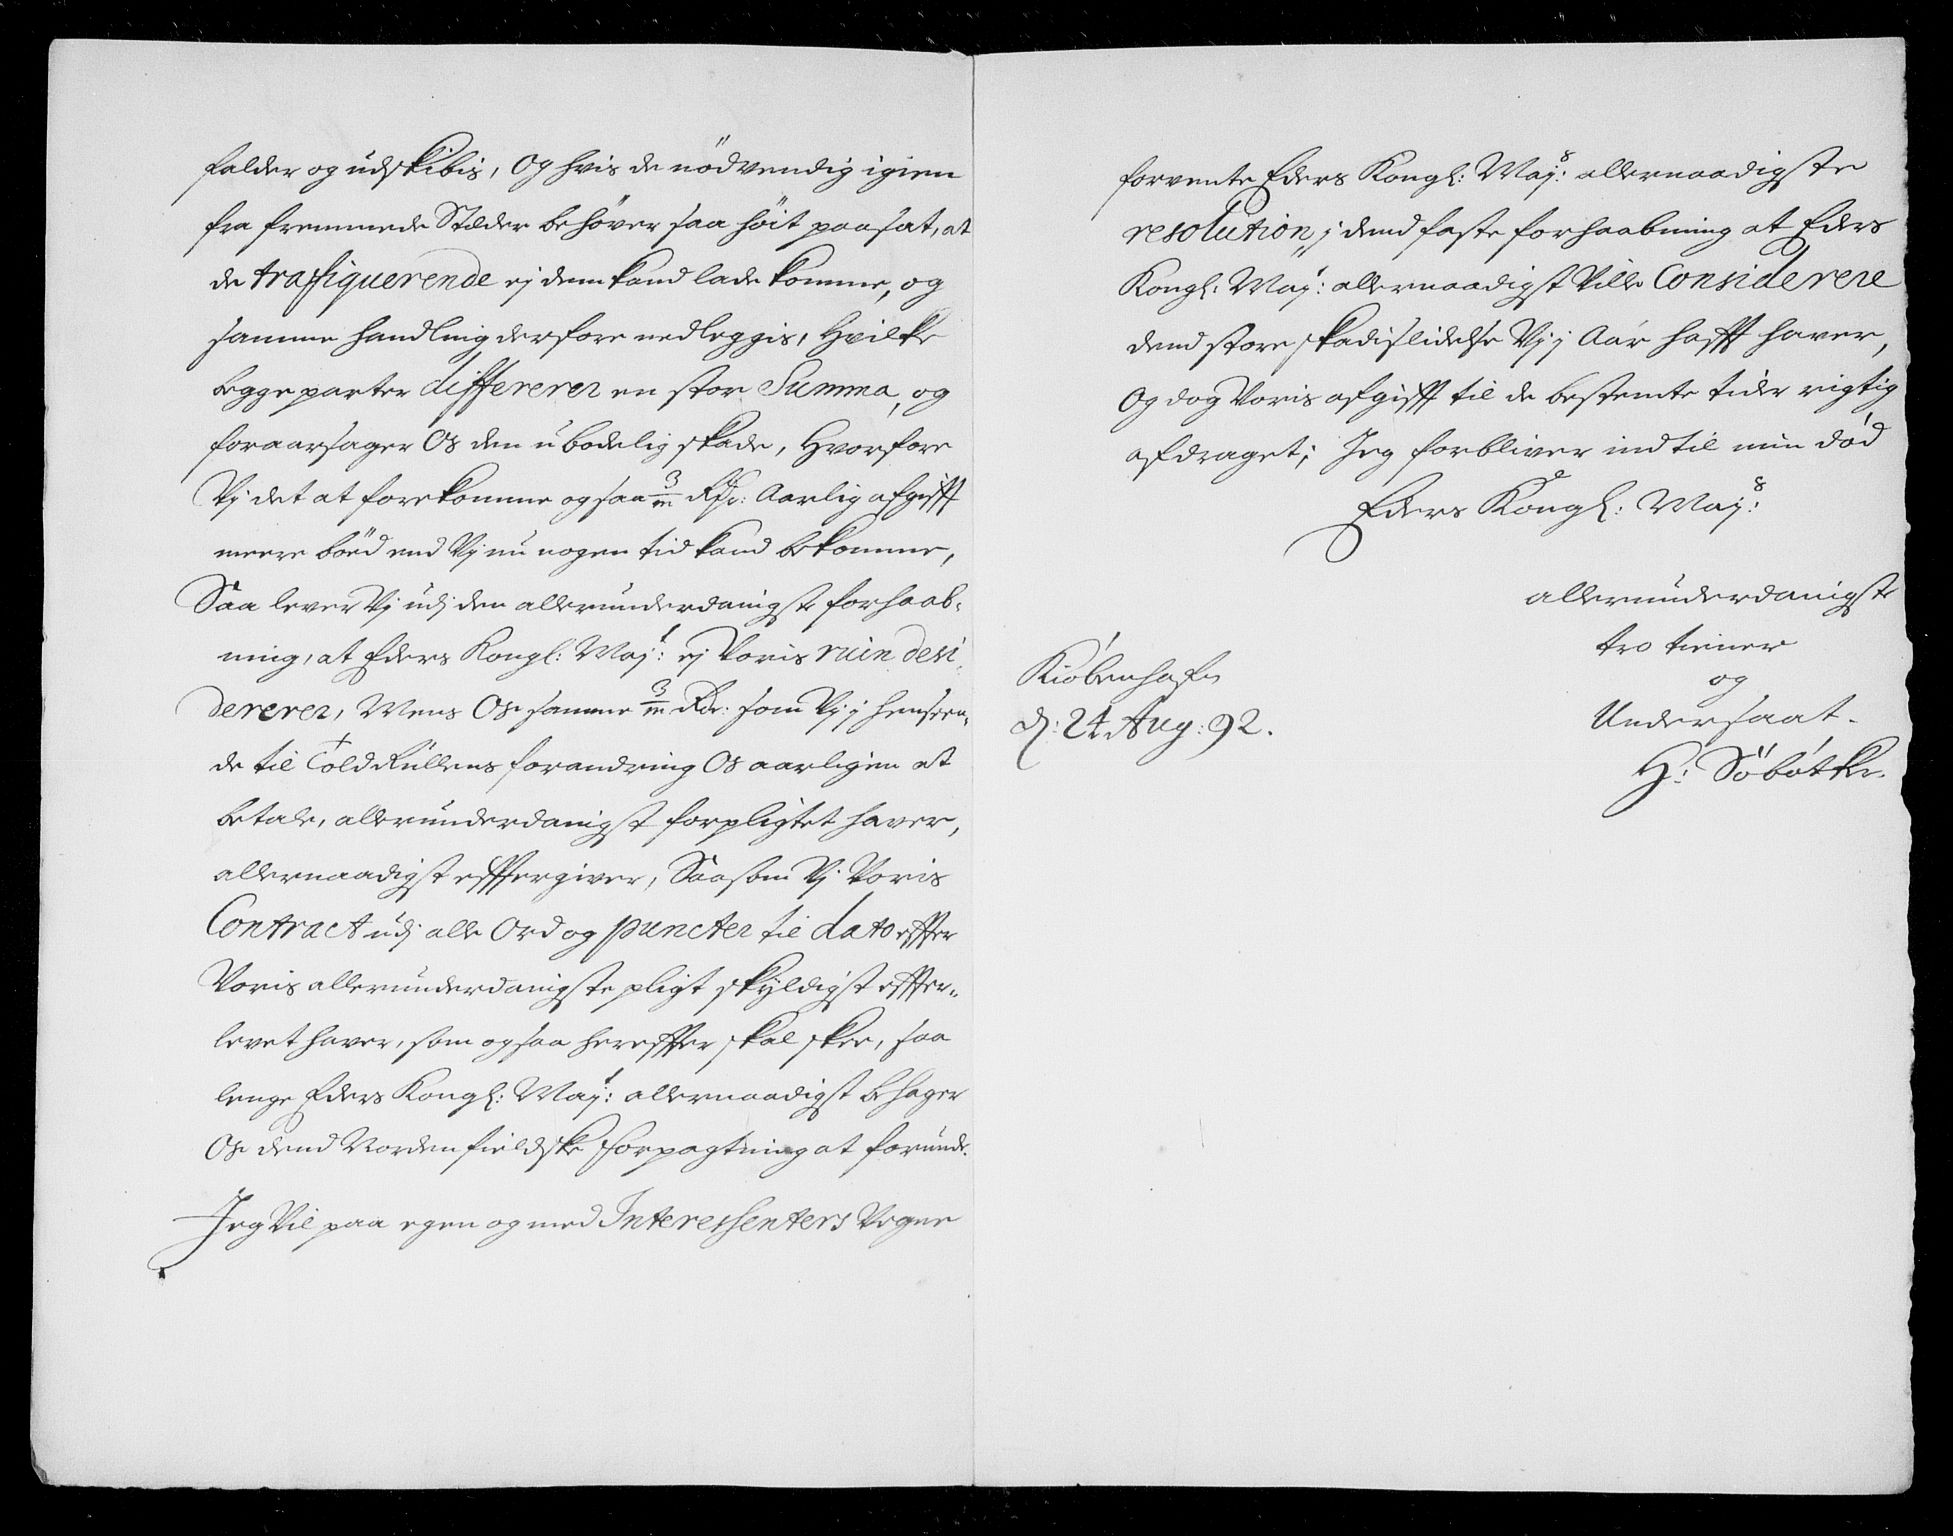 falder og udskibis, Og hvis de nödvendig igien
fra fremmede Stæder behöver saa höit paasat, at
de trafiquerende ej dem kand lade komme, og
samme handling derfore nedleggis, Hvilke
begge parter differerer en stor Summa, og
foraarsager Os den ubodelig skade, Hvorfore
Vj det at forekomme og saa 3/m Rdr: Aarlig afgifft
meere böed end Vj nu nogen tid kand bekomme,
Saa lever Vj udj den allerunderdanigste forhaab-
ning, at Eders Kongl: Maj:t ej Voris ruin desi-
dererer, Mens Os samme 3/m Rdr: som Vj j henseen-
de til Told Rullens forandring Os aarligen at
betale, allerunderdanigst forpligtet haver,
allernaadigst efftergiver, Saasom Vj Voris
Contract udj alle Ord og puncter til dato effter
Voris allerunderdanigste pligt skyldigst effter-
levet haver, som og saa hereffter skal skee, saa
lenge Eders Kongl: Maj:t allernaadigst behager
Os dend Nordenfieldske forpagtning at forunde.
Jeg Vil paa egen og med Interessenters Vegne
forvente Eders Kongl: Maj:s allernaadigste
resolution, j dend faste forhaabning at Eders
Kongl: Maj:t allernaadigst Ville Considerere
dend store skadislidelse Vj j Aar hafft haver,
Og dog Voris afgifft til de bestemte tider rigtig
afdraget; Jeg forbliver ind til min död
Eders Kongl: Maj:s
allerunderdanigste
tro tiener
og
Undersaat.
H: Söbötker.
Kiöbenhafn
d: 24 Aug: 92.